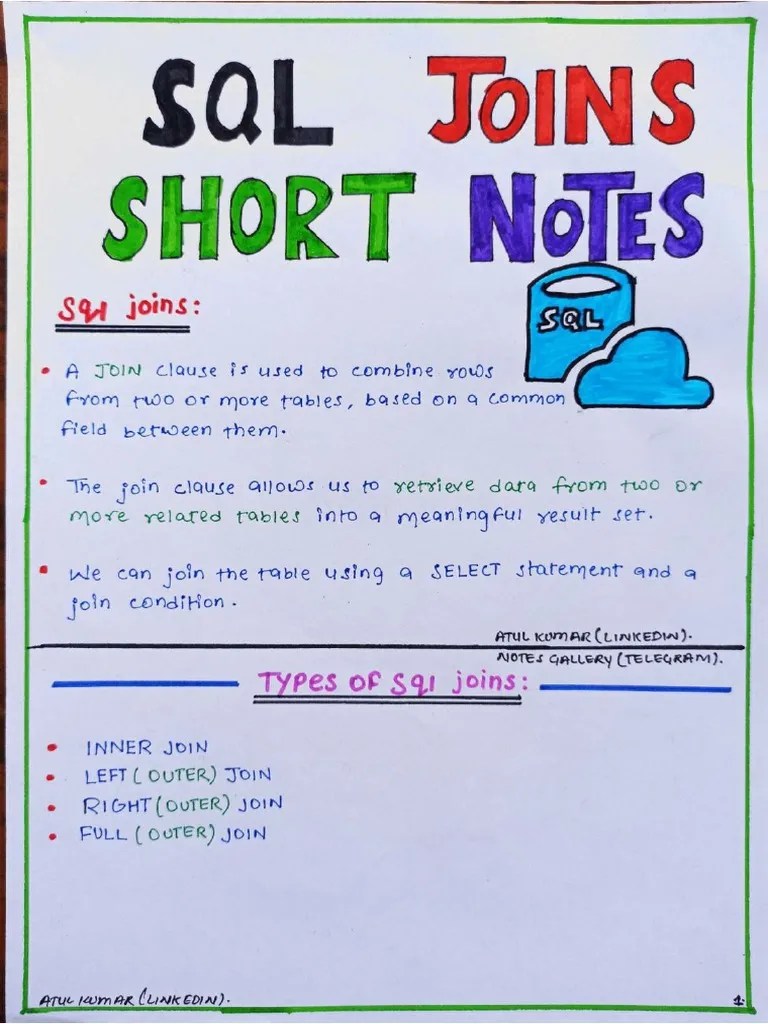 SQL JOINS
SHORT NOTES
SQL
Sql joins:
• A JOIN clause is used to combine rows
from two or more tables, based on a common
field between them.
• The join clause allows us to retrieve data from two or
more related tables into a meaningful result set.
• We can join the table using a SELECT statement and a
join condition.
ATUL KUMAR (LINKEDIN).
NOTES GALLERY (TELEGRAM).
TYPES OF Sql joins:
• INNER JOIN
• LEFT (OUTER) JOIN
• RIGHT (OUTER) JOIN
• FULL (OUTER) JOIN
ATUL KUMAR (LINKEDIN).
1.